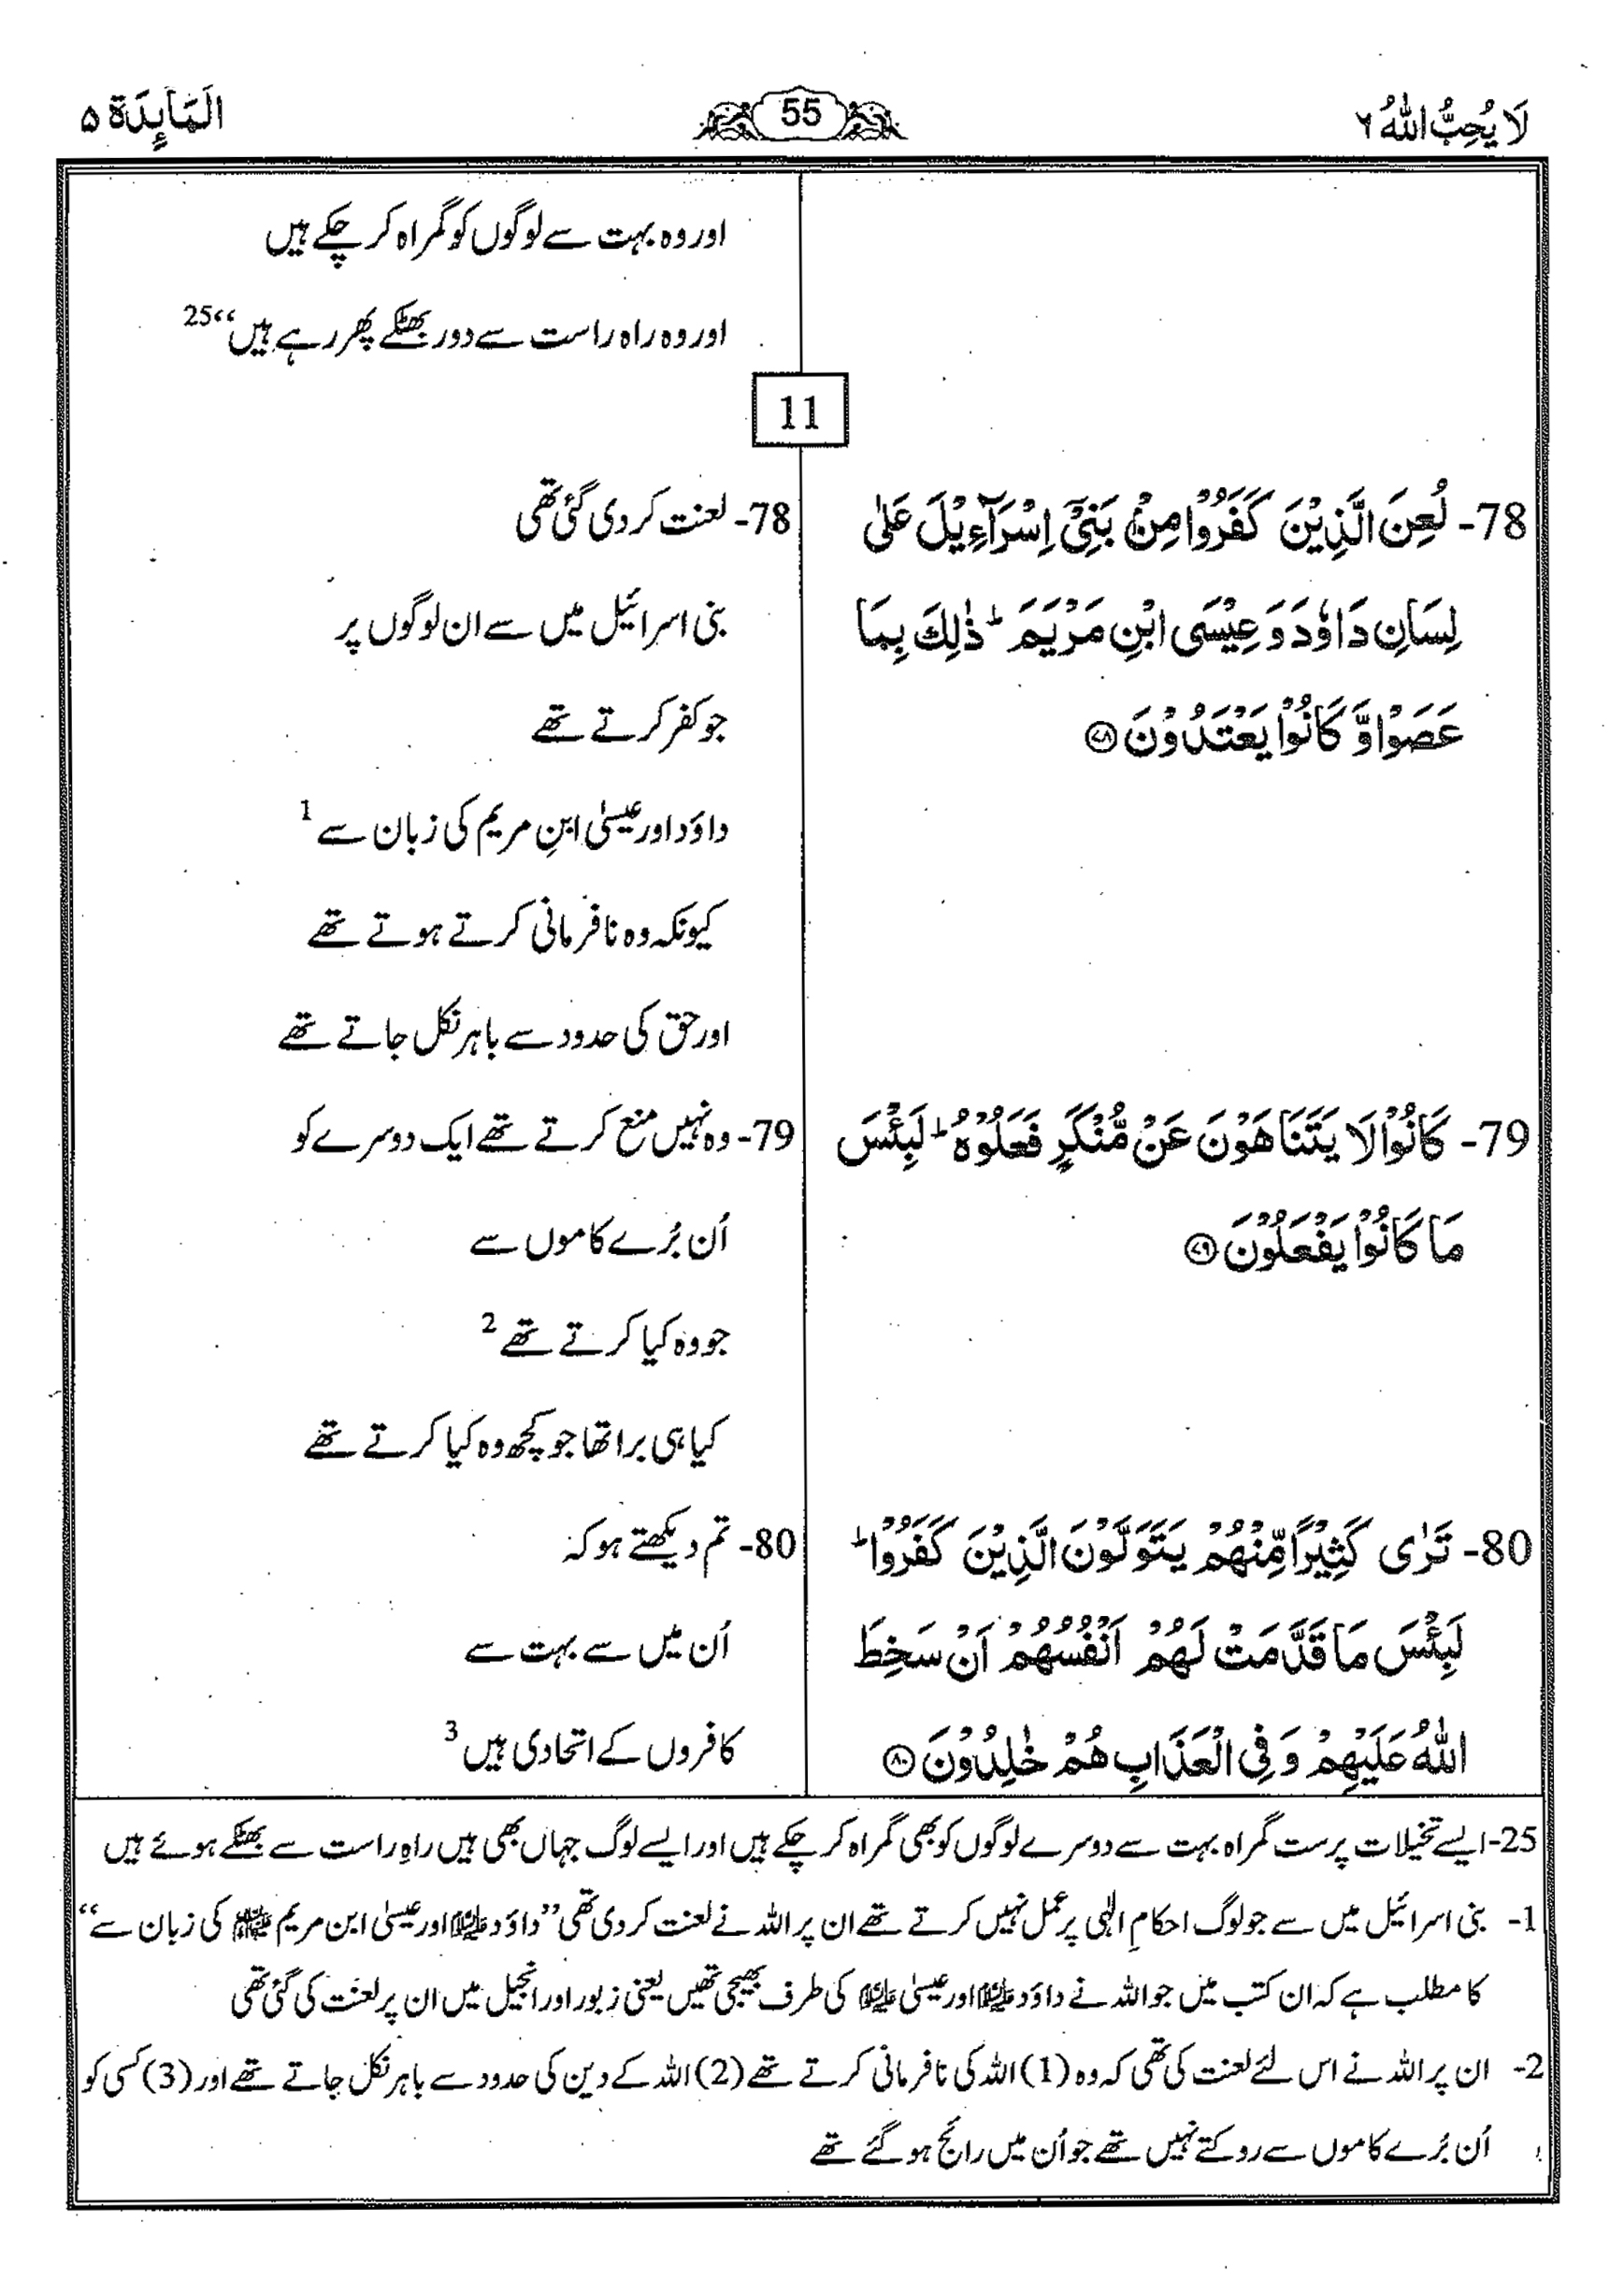 لَا يُحِبُّ اللّٰهُ ٦
55
الْمَآئِدَة ۵
اور وہ بہت سے لوگوں کو گمراہ کر چکے ہیں
اور وہ راہ راست سے دور بھٹکے پھر رہے ہیں“ 25
11
78- لُعِنَ الَّذِيْنَ كَفَرُوْا مِنْۢ بَنِيْٓ اِسْرَآءِيْلَ عَلٰى
لِسَانِ دَاوٗدَ وَ عِيْسَى ابْنِ مَرْيَمَ ؕ ذٰلِكَ بِمَا
عَصَوْا وَّ كَانُوْا يَعْتَدُوْنَ ﴿۷۸﴾
78- لعنت کر دی گئی تھی
بنی اسرائیل میں سے ان لوگوں پر
جو کفر کرتے تھے
داؤد اور عیسیٰ ابنِ مریم کی زبان سے 1
کیونکہ وہ نافرمانی کرتے ہوتے تھے
اور حق کی حدود سے باہر نکل جاتے تھے
79- كَانُوْا لَا يَتَنَاهَوْنَ عَنْ مُّنْكَرٍ فَعَلُوْهُ ؕ لَبِئْسَ
مَا كَانُوْا يَفْعَلُوْنَ ﴿۷۹﴾
79- وہ نہیں منع کرتے تھے ایک دوسرے کو
اُن بُرے کاموں سے
جو وہ کیا کرتے تھے 2
کیا ہی برا تھا جو کچھ وہ کیا کرتے تھے
80- تَرٰى كَثِيْرًا مِّنْهُمْ يَتَوَلَّوْنَ الَّذِيْنَ كَفَرُوْا ؕ
لَبِئْسَ مَا قَدَّمَتْ لَهُمْ اَنْفُسُهُمْ اَنْ سَخِطَ
اللّٰهُ عَلَيْهِمْ وَ فِي الْعَذَابِ هُمْ خٰلِدُوْنَ ﴿۸۰﴾
80- تم دیکھتے ہو کہ
اُن میں سے بہت سے
کافروں کے اتحادی ہیں 3
25- ایسے تخیلات پرست گمراہ بہت سے دوسرے لوگوں کو بھی گمراہ کر چکے ہیں اور ایسے لوگ جہاں بھی ہیں راہِ راست سے بھٹکے ہوئے ہیں
1- بنی اسرائیل میں سے جو لوگ احکامِ الٰہی پر عمل نہیں کرتے تھے ان پر اللہ نے لعنت کر دی تھی ”داؤد علیہ السلام اور عیسیٰ ابن مریم علیہ السلام کی زبان سے“
کا مطلب ہے کہ ان کتب میں جو اللہ نے داؤد علیہ السلام اور عیسیٰ علیہ السلام کی طرف بھیجی تھیں یعنی زبور اور انجیل میں ان پر لعنت کی گئی تھی
2- ان پر اللہ نے اس لئے لعنت کی تھی کہ وہ (1) اللہ کی نافرمانی کرتے تھے (2) اللہ کے دین کی حدود سے باہر نکل جاتے تھے اور (3) کسی کو
اُن بُرے کاموں سے روکتے نہیں تھے جو اُن میں رائج ہو گئے تھے